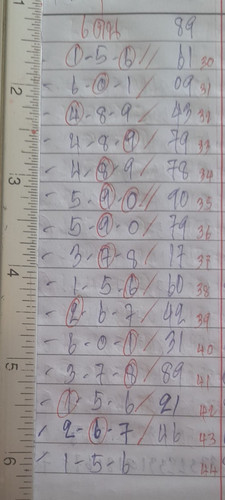 89
- 1-5-6// 61 30
- 6-0-1/ 09 31
- 4-8-9/ 43 32
- 4-8-9/ 79 33
- 4-8-9/ 78 34
- 5-9-0// 90 35
- 5-9-0/ 79 36
- 3-7-8/ 17 37
- 1-5-6/ 60 38
- 2-6-7/ 42 39
- 6-0-1/ 31 40
- 3-7-8/ 89 41
- 1-5-6/ 21 42
- 2-6-7/ 46 43
- 1-5-6 44
2
3
4
5
6